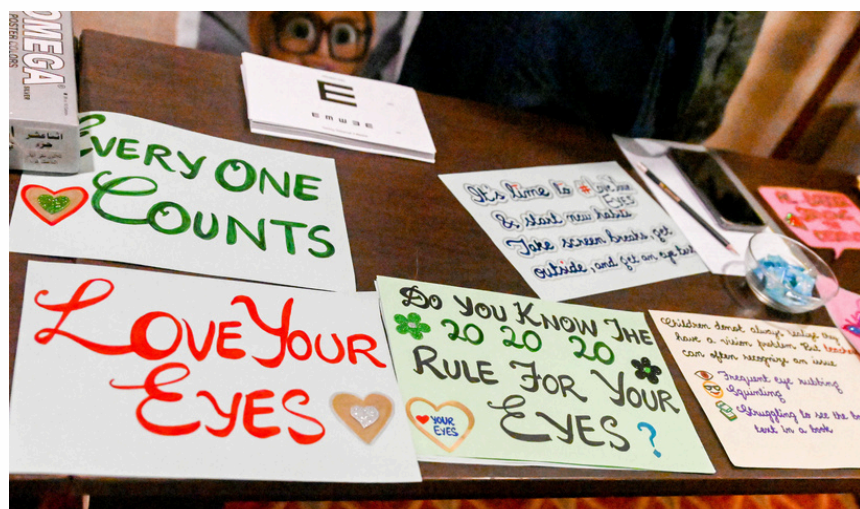 OMEGA
POSTER COLORS
SILVER
اثنا عشر
E
E M W 3 E
EVERY ONE
COUNTS
It's time to #LoveYour
EYES
& start new habits
Take screen breaks, get
outside, and get an eye test
LOVE YOUR
EYES
DO YOU KNOW THE
20 20 20
RULE FOR YOUR
EYES?
YOUR
EYES
Children do not always realize they
have a vision problem. But teachers
can often recognize an issue
Frequent eye rubbing
Squinting
Struggling to see the
text in a book